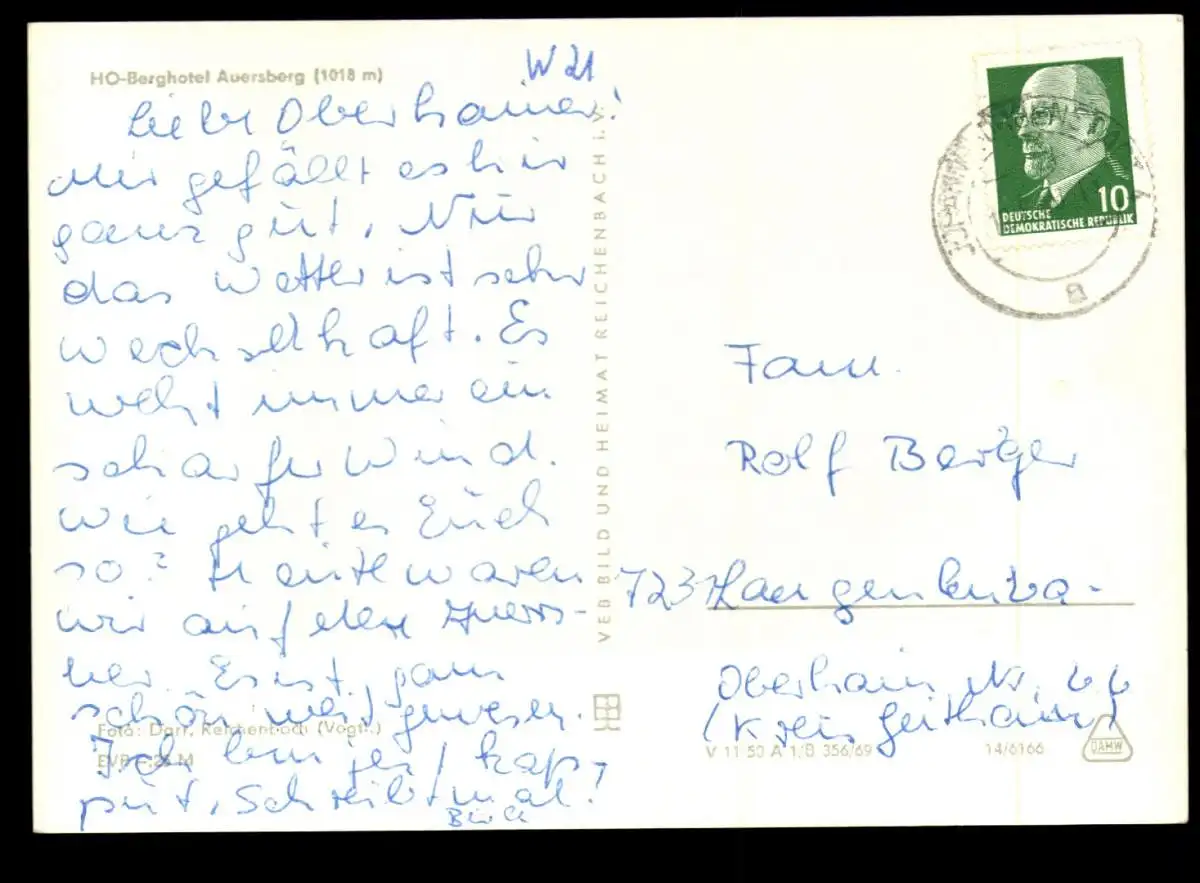 HO-Berghotel Auersberg (1018 m)
W 21
Liebe Oberhainer!
Mir gefällt es hier
ganz gut. Nur
das Wetter ist sehr
wechselhaft. Es
weht immer ein
scharfer Wind.
Wie geht es Euch
so? Heute waren
wir auf dem Auers-
ber. Es ist ganz
schön weit gewesen.
Foto: Darr, Reichenbach (Vogtl.)
Ich bin jetzt kap-
EVP -.25 M
put. Schreibt mal!
VEB BILD UND HEIMAT REICHENBACH I. V.
10
DEUTSCHE
DEMOKRATISCHE REPUBLIK
a
Fam.
Rolf Berger
7231 Langenleuba-
Oberhain Nr. 66
(Kreis Geithain)
V 11 50 A 1/B 356/69 14/6166
DAMW